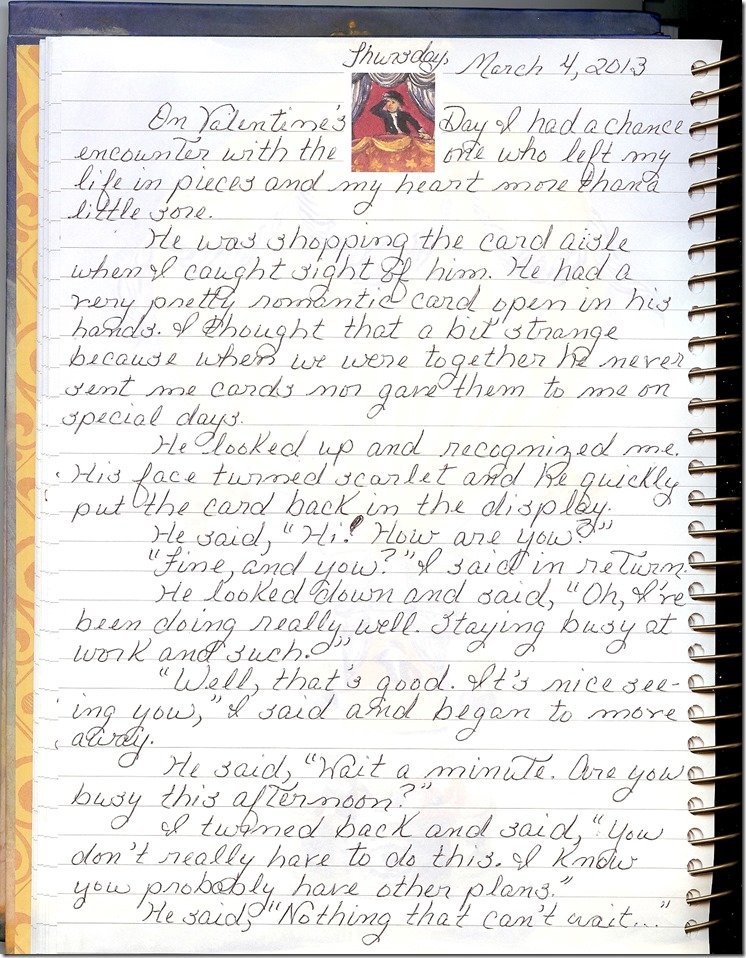 Thursday, March 4, 2013
On Valentine's Day I had a chance
encounter with the one who left my
life in pieces and my heart more than a
little sore.
He was shopping the card aisle
when I caught sight of him. He had a
very pretty romantic card open in his
hands. I thought that a bit strange
because when we were together he never
sent me cards nor gave them to me on
special days.
He looked up and recognized me.
His face turned scarlet and he quickly
put the card back in the display.
He said, "Hi! How are you?"
"Fine, and you?" I said in return.
He looked down and said, "Oh, I've
been doing really well. Staying busy at
work and such."
"Well, that's good. It's nice see-
ing you," I said and began to move
away.
He said, "Wait a minute. Are you
busy this afternoon?"
I turned back and said, "You
don't really have to do this. I know
you probably have other plans."
He said, "Nothing that can't wait..."